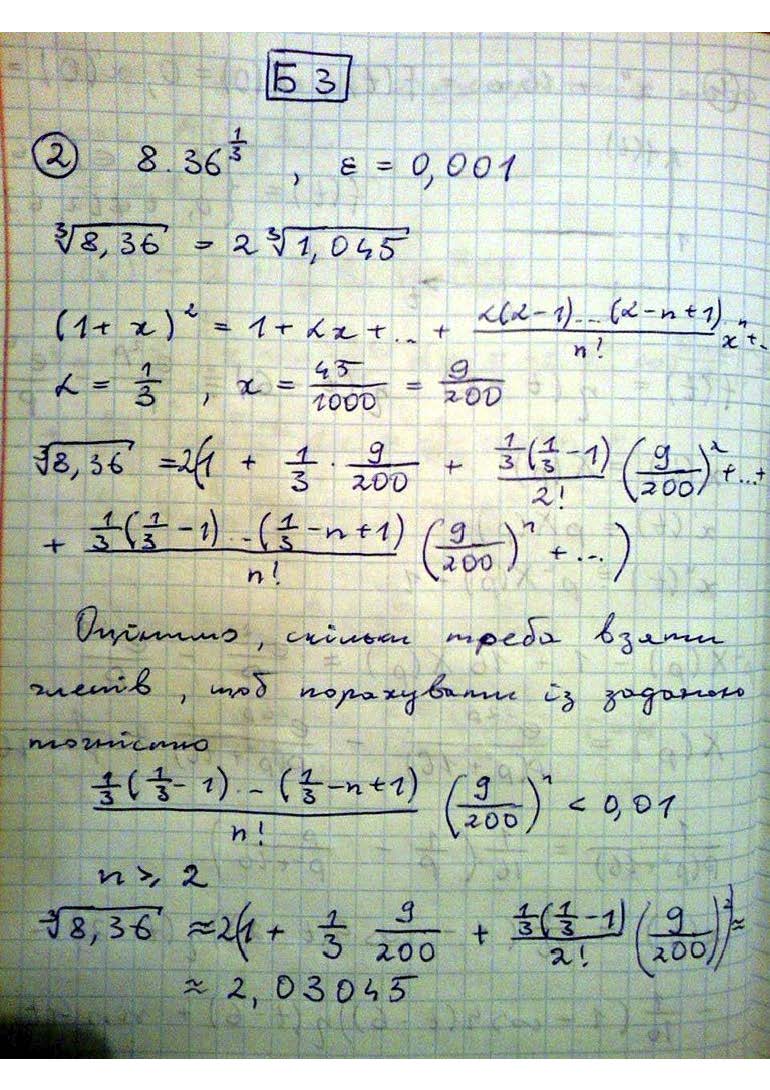 Б 3
② 8.36^{1/3} , ε = 0,001
∛8,36 = 2∛1,045
(1 + x)^α = 1 + αx + ... + α(α-1)...(α-n+1)/n! x^n + ..
α = 1/3 , x = 45/1000 = 9/200
∛8,36 = 2(1 + 1/3 · 9/200 + 1/3(1/3 - 1)/2! (9/200)^2 + ... +
+ 1/3(1/3 - 1)...(1/3 - n+1)/n! (9/200)^n + ...)
Оцінимо, скільки треба взяти
членів, щоб порахувати із заданою
точністю
1/3(1/3 - 1)...(1/3 - n+1)/n! (9/200)^n < 0,01
n ⩾ 2
∛8,36 ≈ 2(1 + 1/3 9/200 + 1/3(1/3 - 1)/2! (9/200)^2) ≈
≈ 2,03045